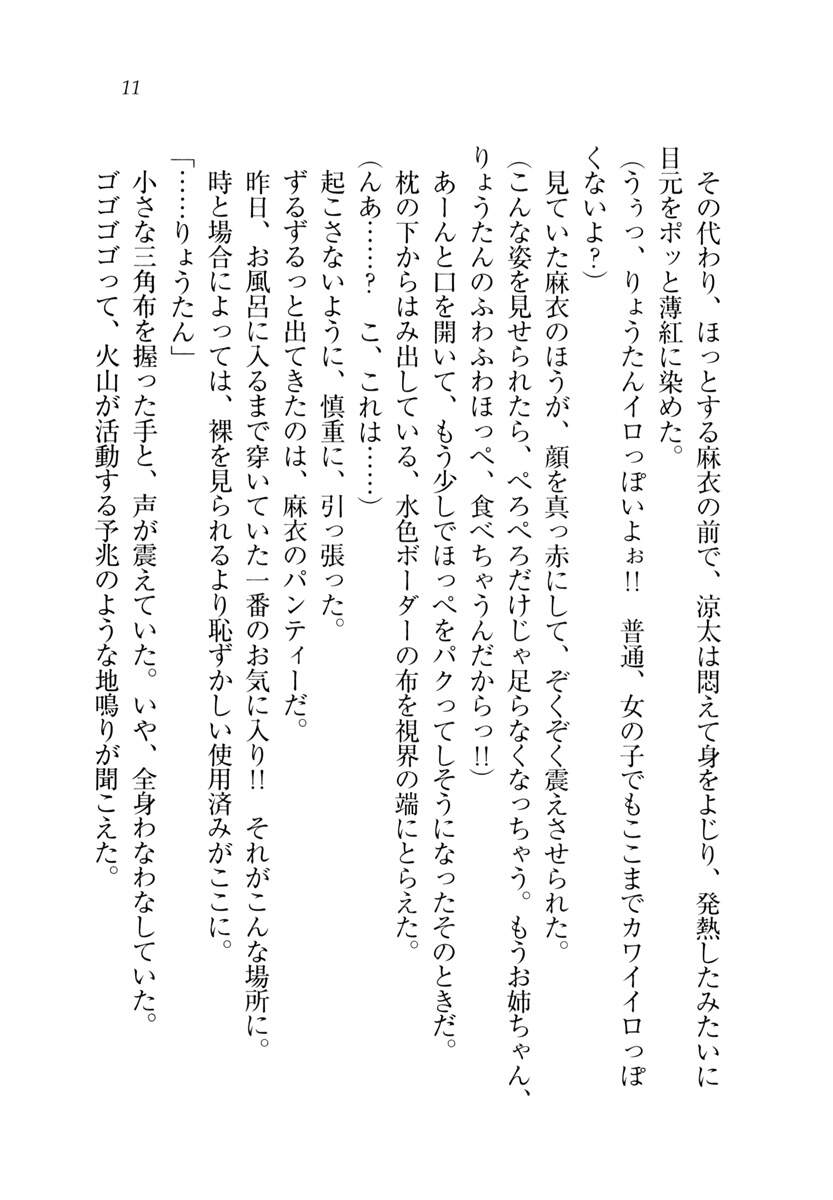 11
その代わり、ほっとする麻衣の前で、涼太は悶えて身をよじり、発熱したみたいに
目元をポッと薄紅に染めた。
(うぅっ、りょうたんイロっぽいよぉ!!　普通、女の子でもここまでカワイイロっぽ
くないよ?)
見ていた麻衣のほうが、顔を真っ赤にして、ぞくぞく震えさせられた。
(こんな姿を見せられたら、ぺろぺろだけじゃ足らなくなっちゃう。もうお姉ちゃん、
りょうたんのふわふわほっぺ、食べちゃうんだからっ!!)
あーんと口を開いて、もう少しでほっぺをパクってしそうになったそのときだ。
枕の下からはみ出している、水色ボーダーの布を視界の端にとらえた。
(んあ……?　こ、これは……)
起こさないように、慎重に、引っ張った。
ずるずるっと出てきたのは、麻衣のパンティーだ。
昨日、お風呂に入るまで穿いていた一番のお気に入り!!　それがこんな場所に。
時と場合によっては、裸を見られるより恥ずかしい使用済みがここに。
「……りょうたん」
小さな三角布を握った手と、声が震えていた。いや、全身わなわなしていた。
ゴゴゴゴって、火山が活動する予兆のような地鳴りが聞こえた。